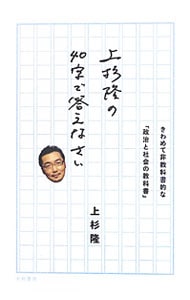 きわめて非教科書的な
「政治と社会の教科書」
上杉隆の
40字で答えなさい
上杉隆